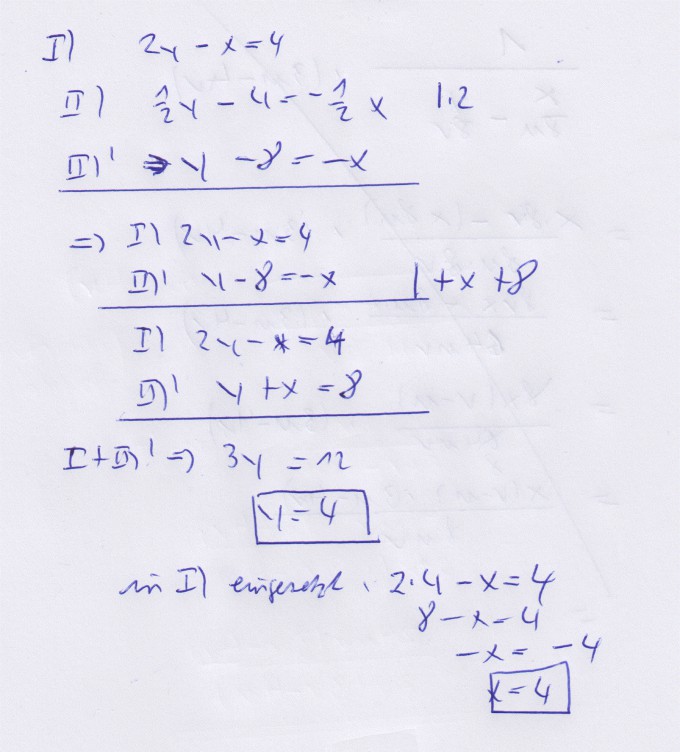 I) 2y - x = 4
II) 1/2 y - 4 = - 1/2 x |·2
II)' => y - 8 = -x
=> I) 2y - x = 4
II)' y - 8 = -x | + x + 8
I) 2y - x = 4
II)' y + x = 8
I + II)' => 3y = 12
y = 4
in I) eingesetzt: 2·4 - x = 4
8 - x = 4
-x = -4
x = 4